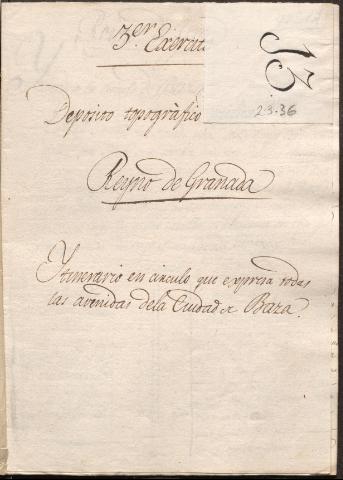 3.er Exercito
13
23-36
Deposito topogràfico
Reyno de Granada
Ytinerario en circulo que expresa todas
las avenidas dela Ciudad de Baza.